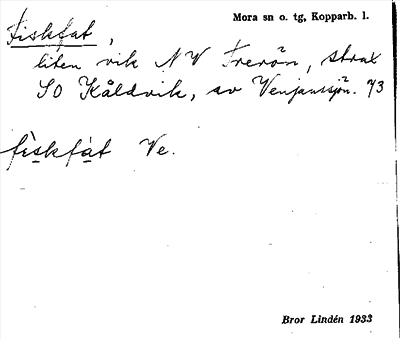 Fiskfat, Mora sn o. tg, Kopparb. l.
liten vik NV Frerön, strax
SO Kåldvik, av Venjanssjön. 73
fìskfàt Ve.
Bror Lindén 1933